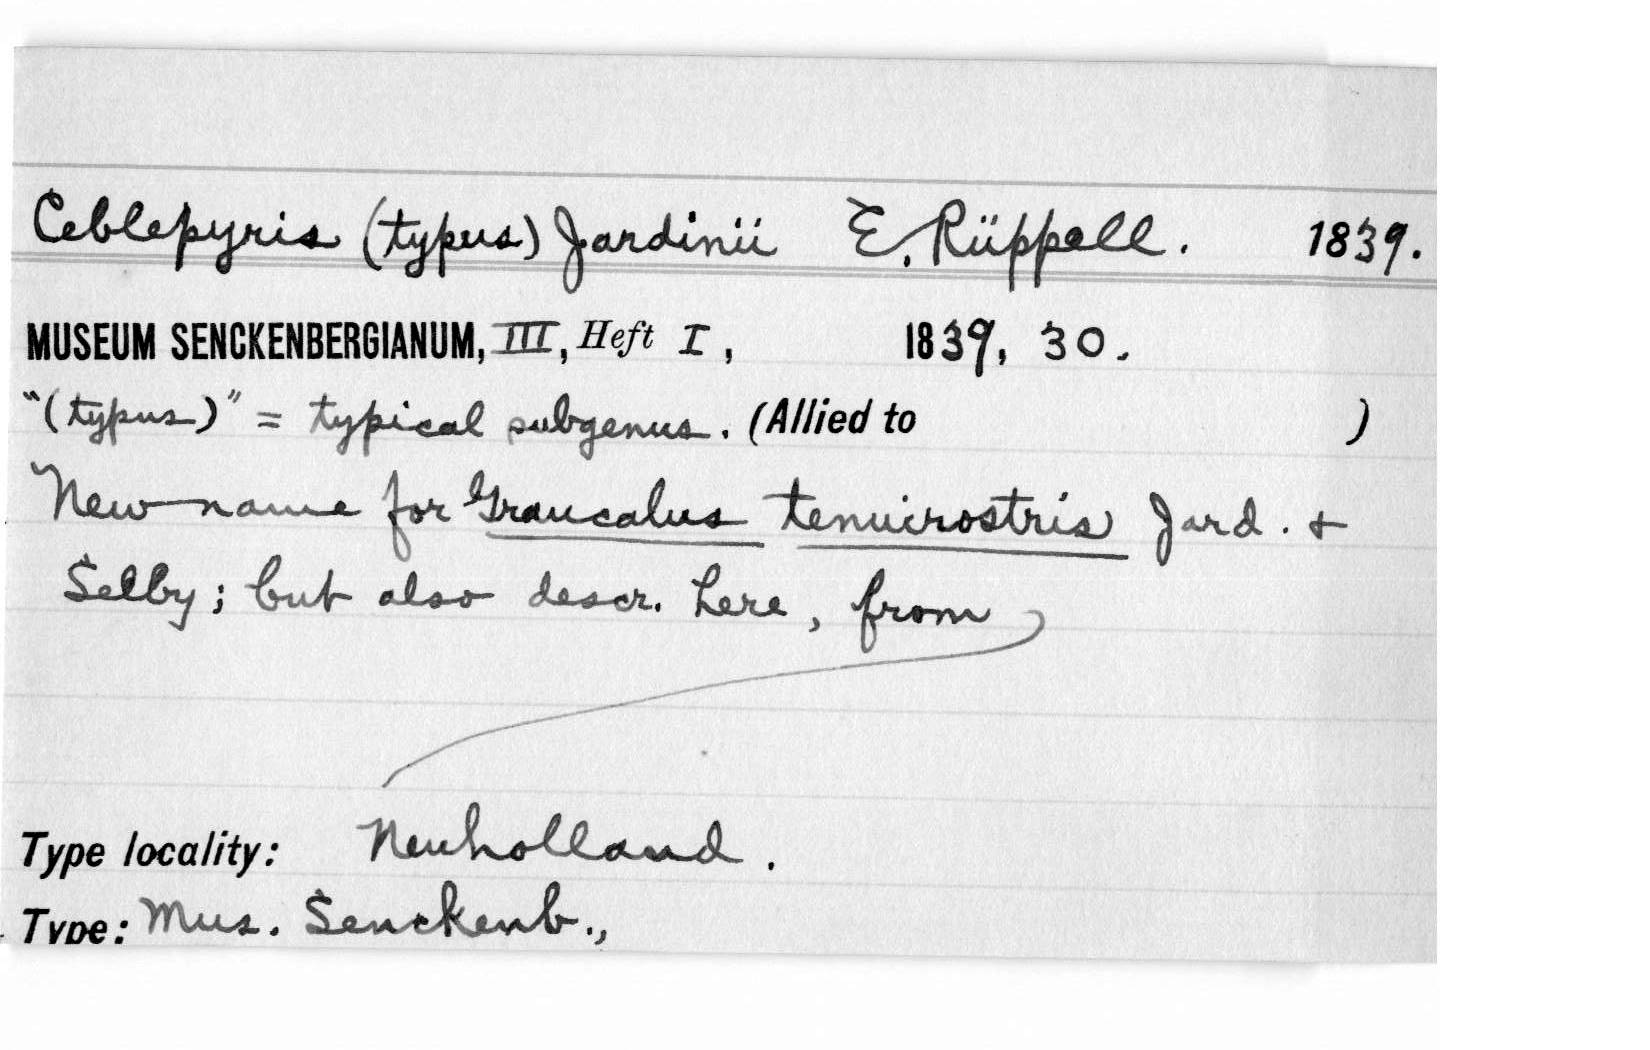 Ceblepyris (typus) Jardinii E. Rüppell. 1839.
MUSEUM SENCKENBERGIANUM, III, Heft I, 1839, 30.
"(typus)" = typical subgenus. (Allied to )
New name for Graucalus tenuirostris Jard. &
Selby; but also descr. here, from
Type locality: Neuholland.
Type: Mus. Senckenb.,